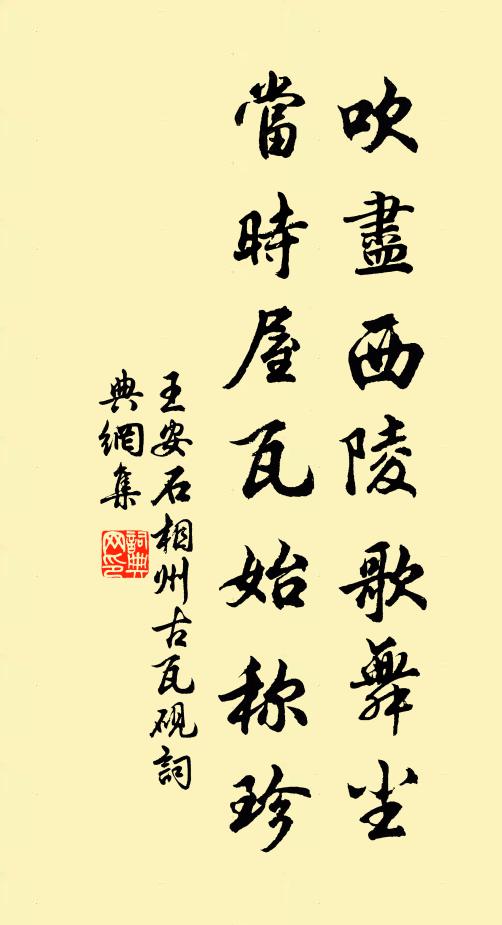 吹盡西陵歌舞尘
當時屋瓦始称珍
王安石相州古瓦硯詞
典網集
詞典
网印